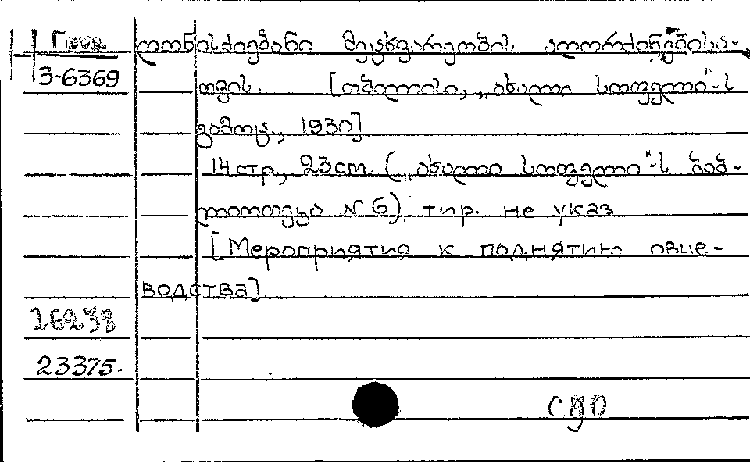 Груз. ღონისძიებანი მეცხვარეობის აღორძინებისა-
3-6369 თვის. [თბილისი, „ახალი სოფელი“-ს
გამოც., 1930]
14 стр., 23 cm. („ახალი სოფელი“-ს ბიბ-
ლიოთეკა № 6). тир. не указ
[Мероприятия к поднятию овце-
водства]
16238
23375.